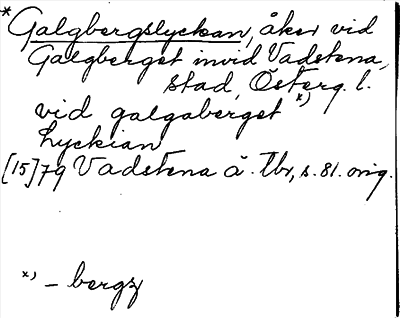 * Galgbergslyckan, åker vid
Galgberget invid Vadstena,
stad, Österg. l.
vid galgaberget x)
Lyckian
[15]79 Vadstena ä. Tbr, s. 81. orig.
x) – bergz